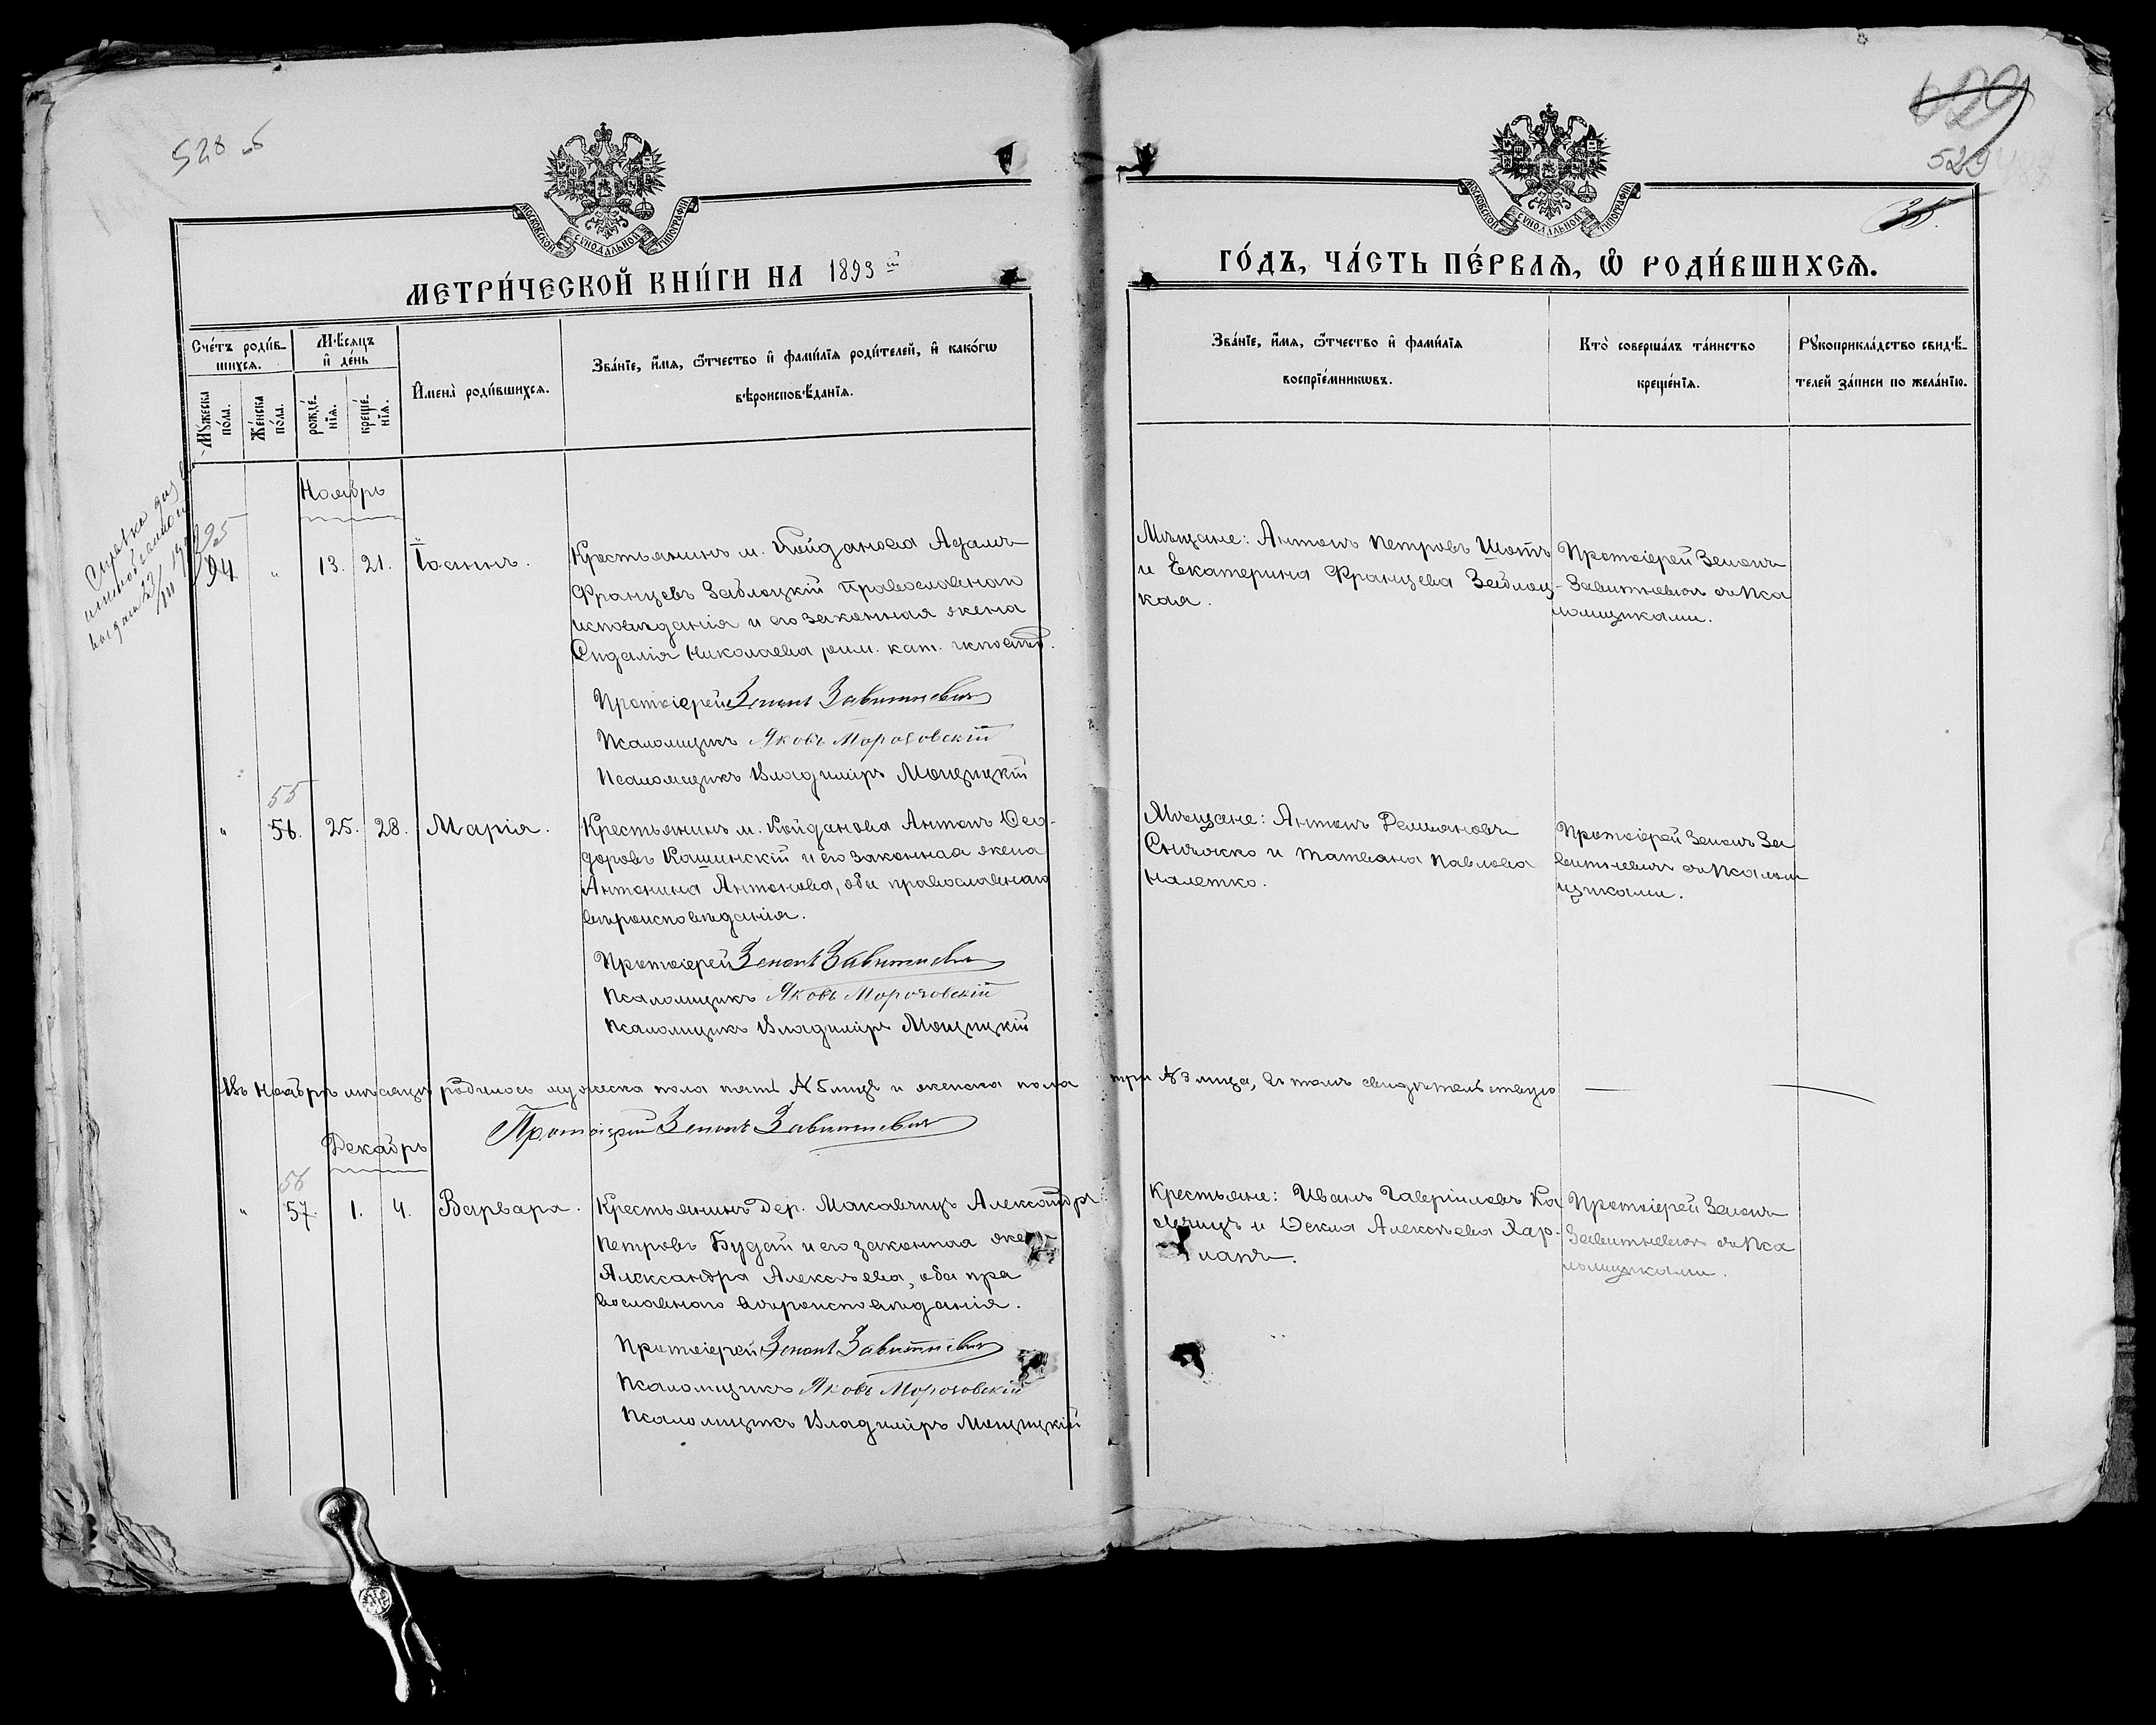 528 об
529
35
МОСКОВСКОЙ СУНОДАЛЬНОЙ ТИПОГРАФІИ
МОСКОВСКОЙ СУНОДАЛЬНОЙ ТИПОГРАФІИ
МЕТРИ́ЧЕСКОЙ КНИ́ГИ НА 1893 й
ГО́ДЪ, ЧА́СТЬ ПЕ́РВАЯ, Ѡ РОДИ́ВШИХСЯ.
Сче́тъ роди́в-
шихся.
Мꙋ́жеска по́ла.
Же́нска по́ла.
Мѣ́сяцъ и де́нь
рожде́-
нїя.
креще́-
нїя.
Имена̀ роди́вшихся.
Зва́нїе, и́мя, ѻ́тчество и фами́лїя роди́телей, и како́гѡ
вѣроисповѣ́данїя.
Зва́нїе, и́мя, ѻ́тчество и фами́лїя
воспрїе́мникѡвъ.
Кто̀ соверша́лъ та́инство
креще́нїя.
Рꙋкоприкла́дство свидѣ́-
телей за́писи по жела́нїю.
Справка
выдана
Ноябрь
95
94 " 13. 21. Іоаннъ.
Крестьянинъ м. Койданова Адамъ
Францевъ Заблоцкій православнаго
исповѣданія и его законная жена
Николаева рим. кат.
Протоіерей Зенонъ Завитневичъ
Псаломщикъ Яковъ Морозовскій
Псаломщикъ Владиміръ Мощицкій
Мѣщане: Антонъ Петровъ Шотъ
и Екатерина Францева Заблоц-
кая.
Протоіерей Зенонъ
Завитневичъ съ Пса
ломщиками.
55
" 56. 25. 28. Марія.
Крестьянинъ м. Койданова Антонъ Ѳео-
доровъ Кошинскій и его законная жена
Антонина Антонова, оба православнаго
вѣроисповѣданія.
Протоіерей Зенонъ Завитневичъ
Псаломщикъ Яковъ Морозовскій
Псаломщикъ Владиміръ Мощицкій
Мѣщане: Антонъ
и Татьяна Павлова
Налетко.
Протоіерей Зенонъ За
витневичъ съ Псалом
щиками.
Въ Ноябрѣ мѣсяцѣ родилось мужеска пола пять № 5 лицъ и женска пола три № 3 лица, въ томъ свидѣтельствую
Протоіерей Зенонъ Завитневичъ
Декабрь
56
" 57. 1. 4. Варвара.
Крестьянинъ дер. Маковчицъ Александръ
Петровъ Будай и его законная жена
Александра Алексѣева, оба пра
вославнаго вѣроисповѣданія.
Протоіерей Зенонъ Завитневичъ
Псаломщикъ Яковъ Морозовскій
Псаломщикъ Владиміръ Мощицкій
Крестьяне: Иванъ Гавріиловъ Ка
и Ѳекла Алексѣева Хар-
ланъ.
Протоіерей Зенонъ
Завитневичъ съ Пса
ломщиками.